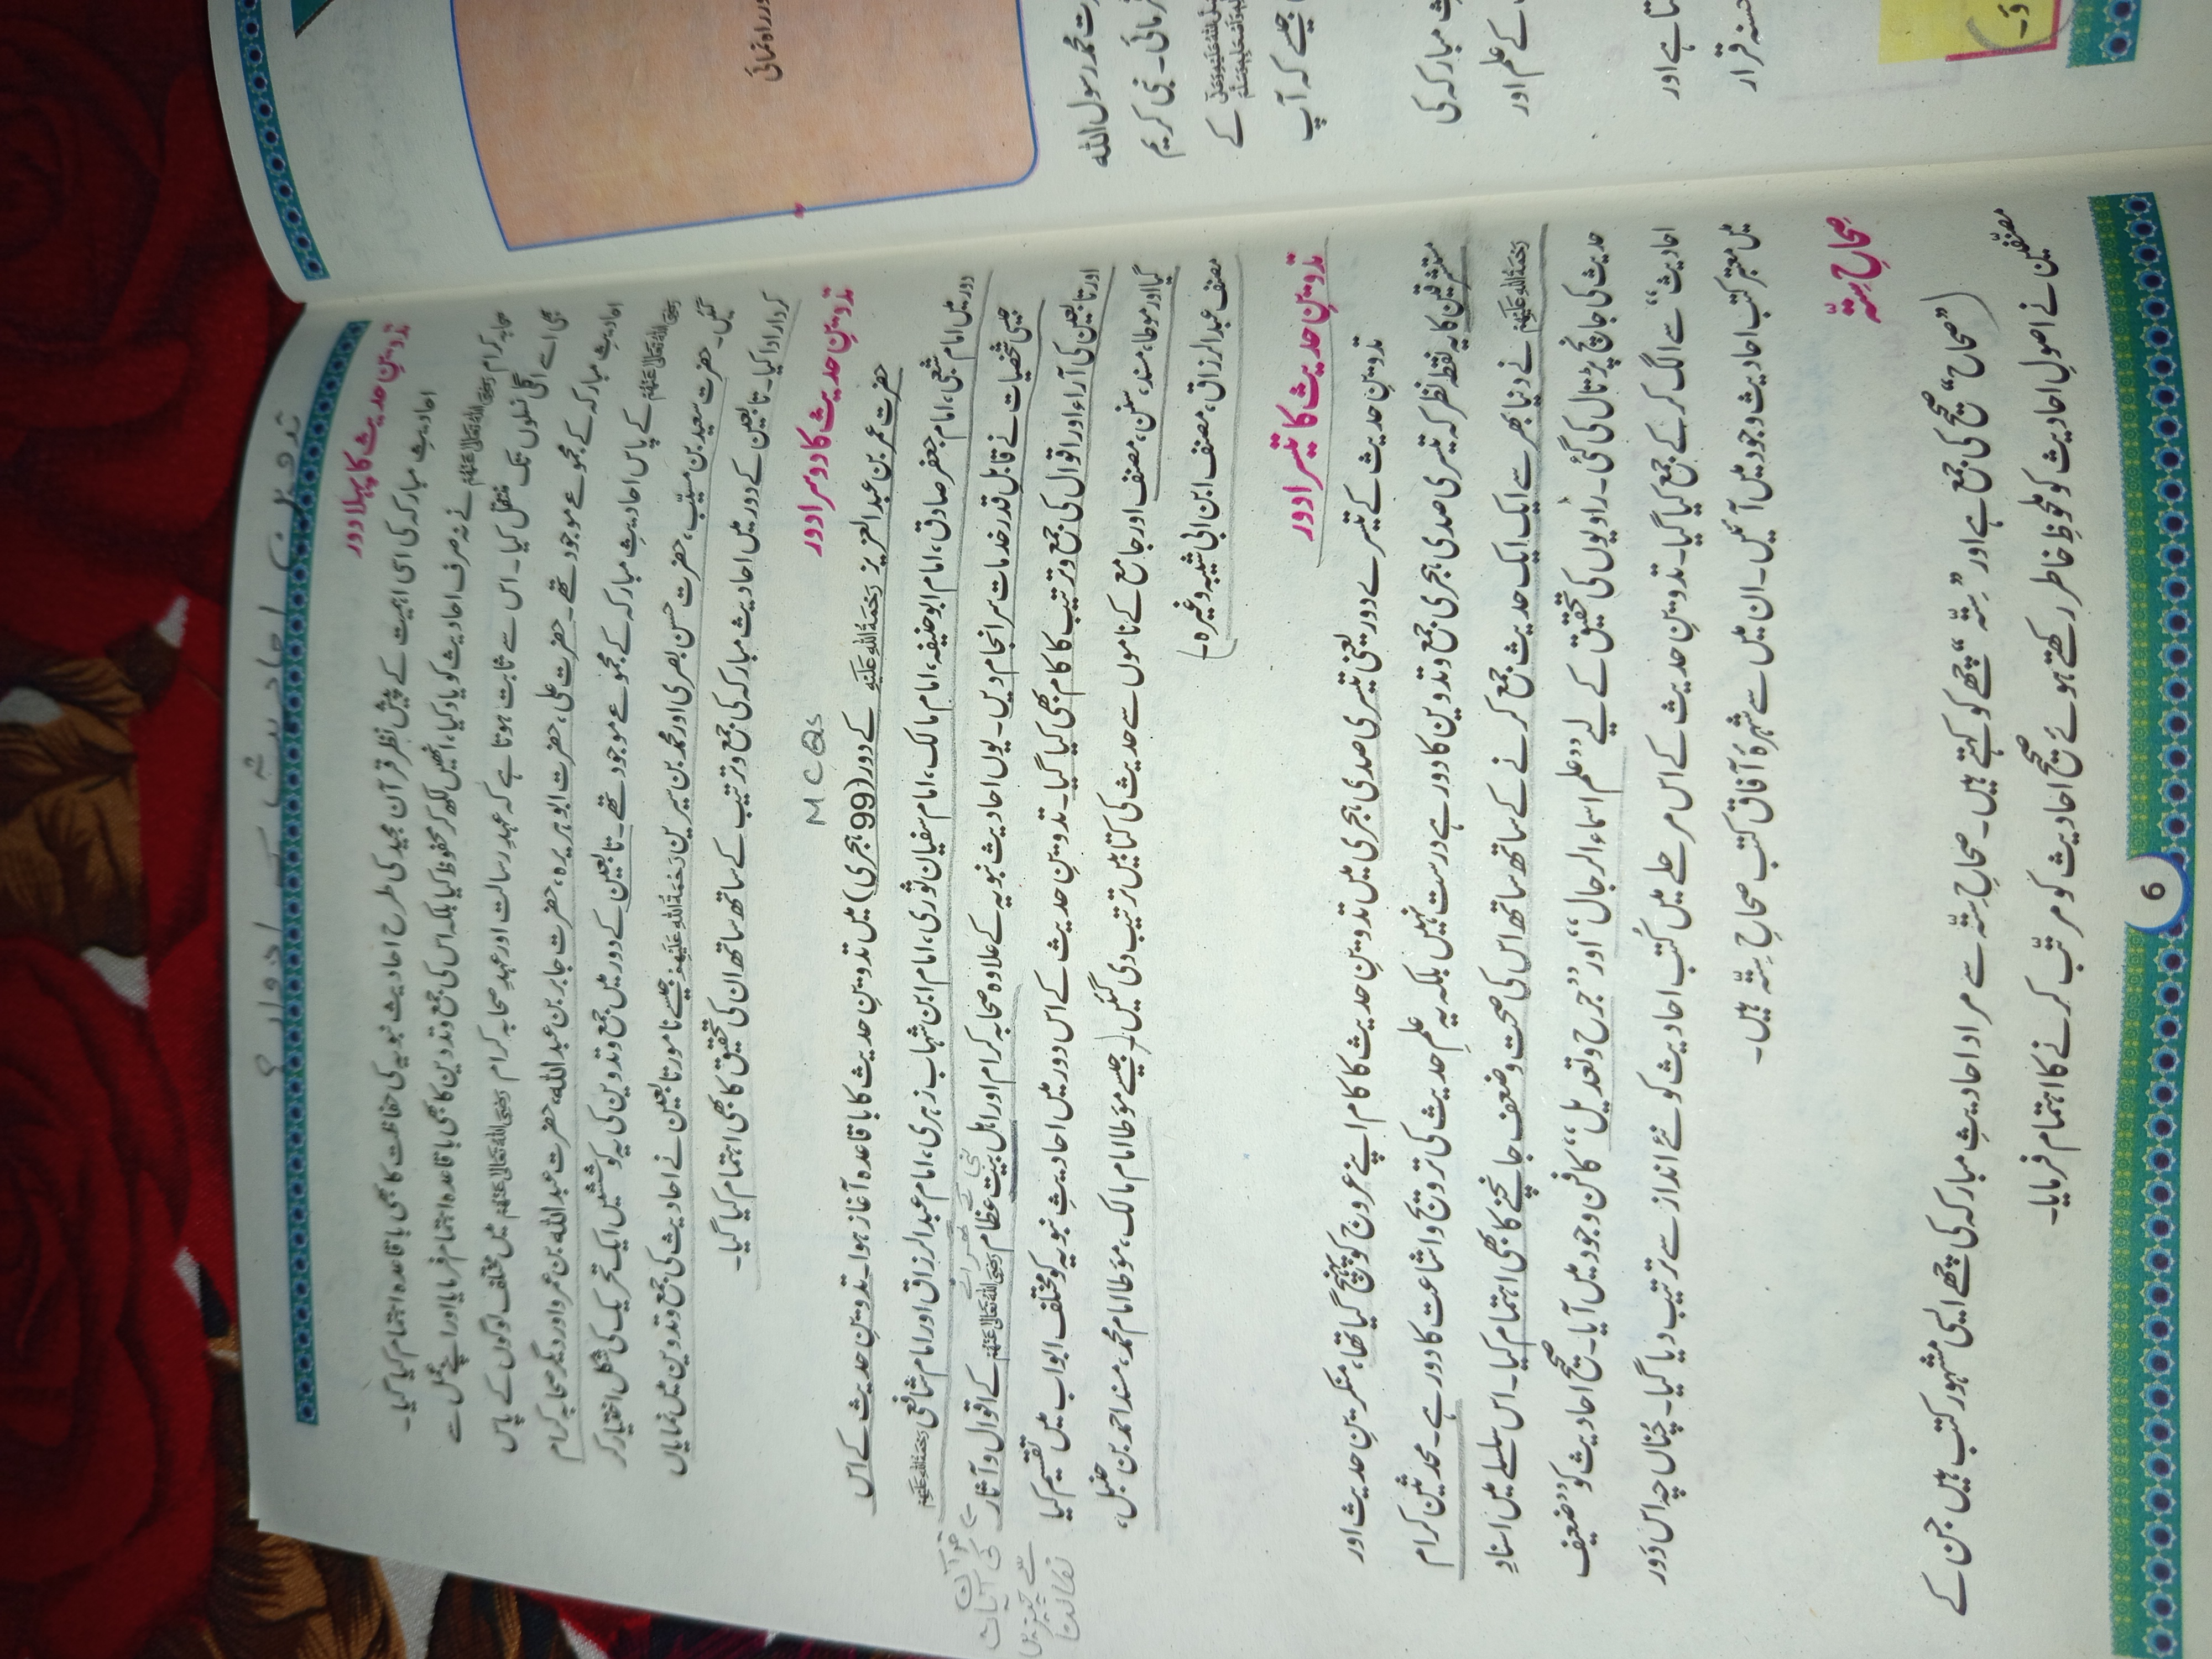 تدوین احادیث کے ادوار؟
تدوینِ حدیث کا پہلا دور
احادیثِ مبارکہ کی اسی اہمیت کے پیش نظر قرآن مجید کی طرح احادیث نبویہ کی حفاظت کا بھی باقاعدہ اہتمام کیا گیا۔
صحابہ کرام رَضِیَ اللهُ تَعَالٰی عَنْهُمْ نے نہ صرف احادیث کو یاد کیا، انھیں لکھ کر محفوظ کیا بلکہ اس کی جمع و تدوین کا بھی باقاعدہ اہتمام فرمایا اور اپنے عمل سے
بھی اسے اگلی نسلوں تک منتقل کیا۔ اس سے ثابت ہوتا ہے کہ عہدِ رسالت اور عہدِ صحابہ کرام رَضِیَ اللهُ تَعَالٰی عَنْهُمْ میں مختلف لوگوں کے پاس
احادیثِ مبارکہ کے مجموعے موجود تھے۔ حضرت علی، حضرت ابو ہریرہ، حضرت جابر بن عبداللہ، حضرت عبداللہ بن عمرو اور دیگر صحابہ کرام
رَضِیَ اللهُ تَعَالٰی عَنْهُمْ کے پاس احادیثِ مبارکہ کے مجموعے موجود تھے۔ تابعین کے دور میں جمع و تدوین کی یہ کوششیں ایک تحریک کی شکل اختیار کر
گئیں۔ حضرت سعید بن مسیّب، حضرت حسن بصری اور محمد بن سیرین رَحْمَةُ اللهِ عَلَيْهِمْ جیسے نامور تابعین نے احادیث کی جمع و تدوین میں نمایاں
کردار ادا کیا۔ تابعین کے دور میں احادیث مبارکہ کی جمع و ترتیب کے ساتھ ساتھ ان کی تحقیق کا بھی اہتمام کیا گیا۔
تدوینِ حدیث کا دوسرا دور
MCQs
حضرت عمر بن عبدالعزیز رَحْمَةُ اللهِ عَلَيْهِ کے دور (99 ہجری) میں تدوینِ حدیث کا باقاعدہ آغاز ہوا۔ تدوینِ حدیث کے اس
دور میں امام شعبی، امام جعفر صادق، امام ابو حنیفہ، امام مالک، امام سفیان ثوری، امام ابن شہاب زہری، امام عبدالرزاق اور امام شافعی رَحْمَةُ اللهِ عَلَيْهِمْ
جیسی شخصیات نے قابل قدر خدمات سرانجام دیں۔ یوں احادیث نبویہ کے علاوہ صحابہ کرام اور اہل بیت عظام رَضِیَ اللهُ تَعَالٰی عَنْهُمْ کے اقوال و آثار
اور تابعین کی آراء اور اقوال کی جمع و ترتیب کا کام بھی کیا گیا۔ تدوینِ حدیث کے اس دور میں احادیثِ نبویہ کو مختلف ابواب میں تقسیم کیا
گیا اور موطا، مسند، سنن، مصنف اور جامع کے ناموں سے حدیث کی کتابیں ترتیب دی گئیں۔ (جیسے موطا امام مالک، موطا امام محمد، مسند احمد بن حنبل،
مصنف عبدالرزاق، مصنف ابن ابی شیبہ وغیرہ۔)
تدوینِ حدیث کا تیسرا دور
تدوینِ حدیث کے تیسرے دور یعنی تیسری صدی ہجری میں تدوینِ حدیث کا کام اپنے عروج کو پہنچ گیا تھا، منکرینِ حدیث اور
مستشرقین کا یہ نقطۂ نظر کہ تیسری صدی ہجری جمع و تدوین کا دور ہے درست نہیں بلکہ یہ علمِ حدیث کی ترویج و اشاعت کا دور ہے۔ محدثین کرام
رَحْمَةُ اللهِ عَلَيْهِمْ نے دنیا بھر سے ایک ایک حدیث جمع کرنے کے ساتھ ساتھ اس کی صحت و ضعف جانچنے کا بھی اہتمام کیا۔ اس سلسلے میں اسنادِ
حدیث کی جانچ پڑتال کی گئی۔ راویوں کی تحقیق کے لیے ”علم اسماء الرجال“ اور ”جرح و تعدیل“ کا فن وجود میں آیا۔ صحیح احادیث کو ”ضعیف
احادیث“ سے الگ کرکے جمع کیا گیا۔ تدوینِ حدیث کے اس مرحلے میں کُتب احادیث کو نئے انداز سے ترتیب دیا گیا۔ چناں چہ اس دَور
میں معتبر کتب احادیث وجود میں آئیں۔ ان میں سے شہرۂ آفاق کتب صحاحِ ستّہ ہیں۔
صحاحِ ستّہ
(”صحاح“ صحیح کی جمع ہے اور ”ستّہ“ چھے کو کہتے ہیں۔ صحاحِ ستّہ سے مراد احادیثِ مبارکہ کی چھے ایسی مشہور کتب ہیں جن کے
مصنّفین نے اصولِ احادیث کو ملحوظِ خاطر رکھتے ہوئے صحیح احادیث کو مرتّب کرنے کا اہتمام فرمایا۔
6
ور راہ نمائی
رت محمد رسول اللہ
رمائی۔ نبی کریم
کے
جیسے کہ آپ
ث مبارکہ کی
کے علم اور
تا ہے اور
حسنہ قرار